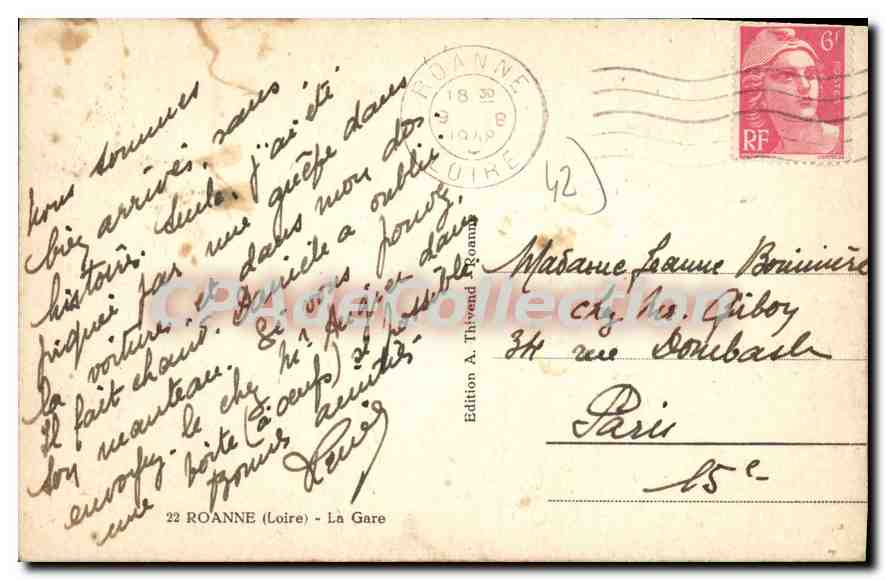 Nous sommes
bien arrivés, sans
histoire. Seule, j'ai été
piquée par une guêpe dans
la voiture, et dans mon dos.
Il fait chaud. Danièle a oublié
son manteau. Si vous pouvez,
envoyez-le chez Mr dans
une boîte (à œufs) si possible.
Bonnes amitiés
22 ROANNE (Loire) - La Gare
Edition A. Thivend - Roanne
ROANNE
18 30
9 8
1948
LOIRE
6F
POSTES
RF
42
Madame Jeanne
chez Mr. Guiboy
34 rue Dombasle
Paris
15e
CPAdeCollection.com